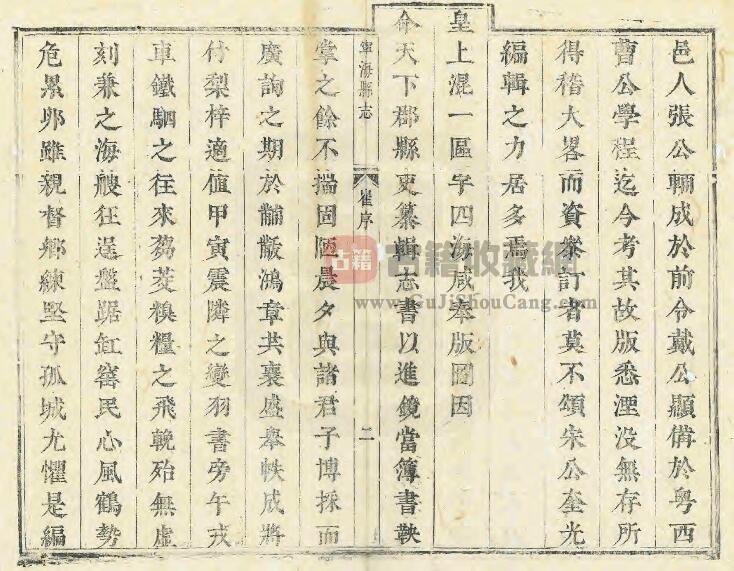 邑人張公輛成於前令戴公顯備於粵西
曹公學程迄今考其故版悉湮没無存所
得稽大畧而資衆訂者莫不頌宋公奎光
編輯之力居多焉我
皇上混一區宇四海咸奉版圖因
命天下郡縣更纂輯志書以進鏡當簿書鞅
寧海縣志
崔序
二
掌之餘不揣固陋晨夕與諸君子博採而
廣詢之期於黼黻鴻章共襄盛舉帙成將
付梨梓適值甲寅震隣之變羽書旁午戎
車鐵駟之徃來芻茭糗糧之飛輓殆無虛
刻兼之海艘狂逞盤踞缸窰民心風鶴勢
危累卵雖親督鄉練堅守孤城尤懼是編
古籍
古籍收藏網
www.GuJiShouCang.com